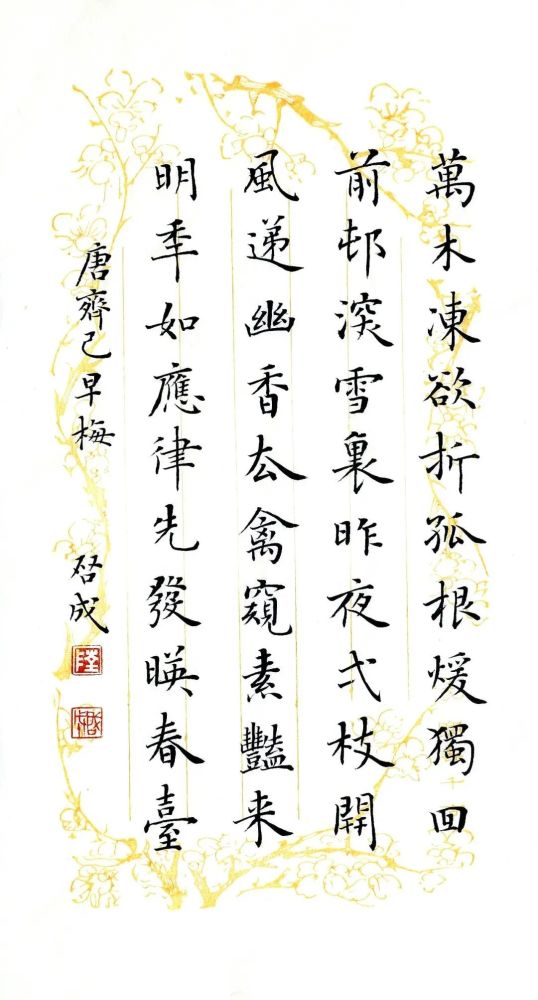 萬木凍欲折孤根煖獨回
前邨深雪裏昨夜弌枝開
風递幽香厺禽窺素豔来
明秊如應律先發暎春臺
唐齊己早梅
啓成
陸